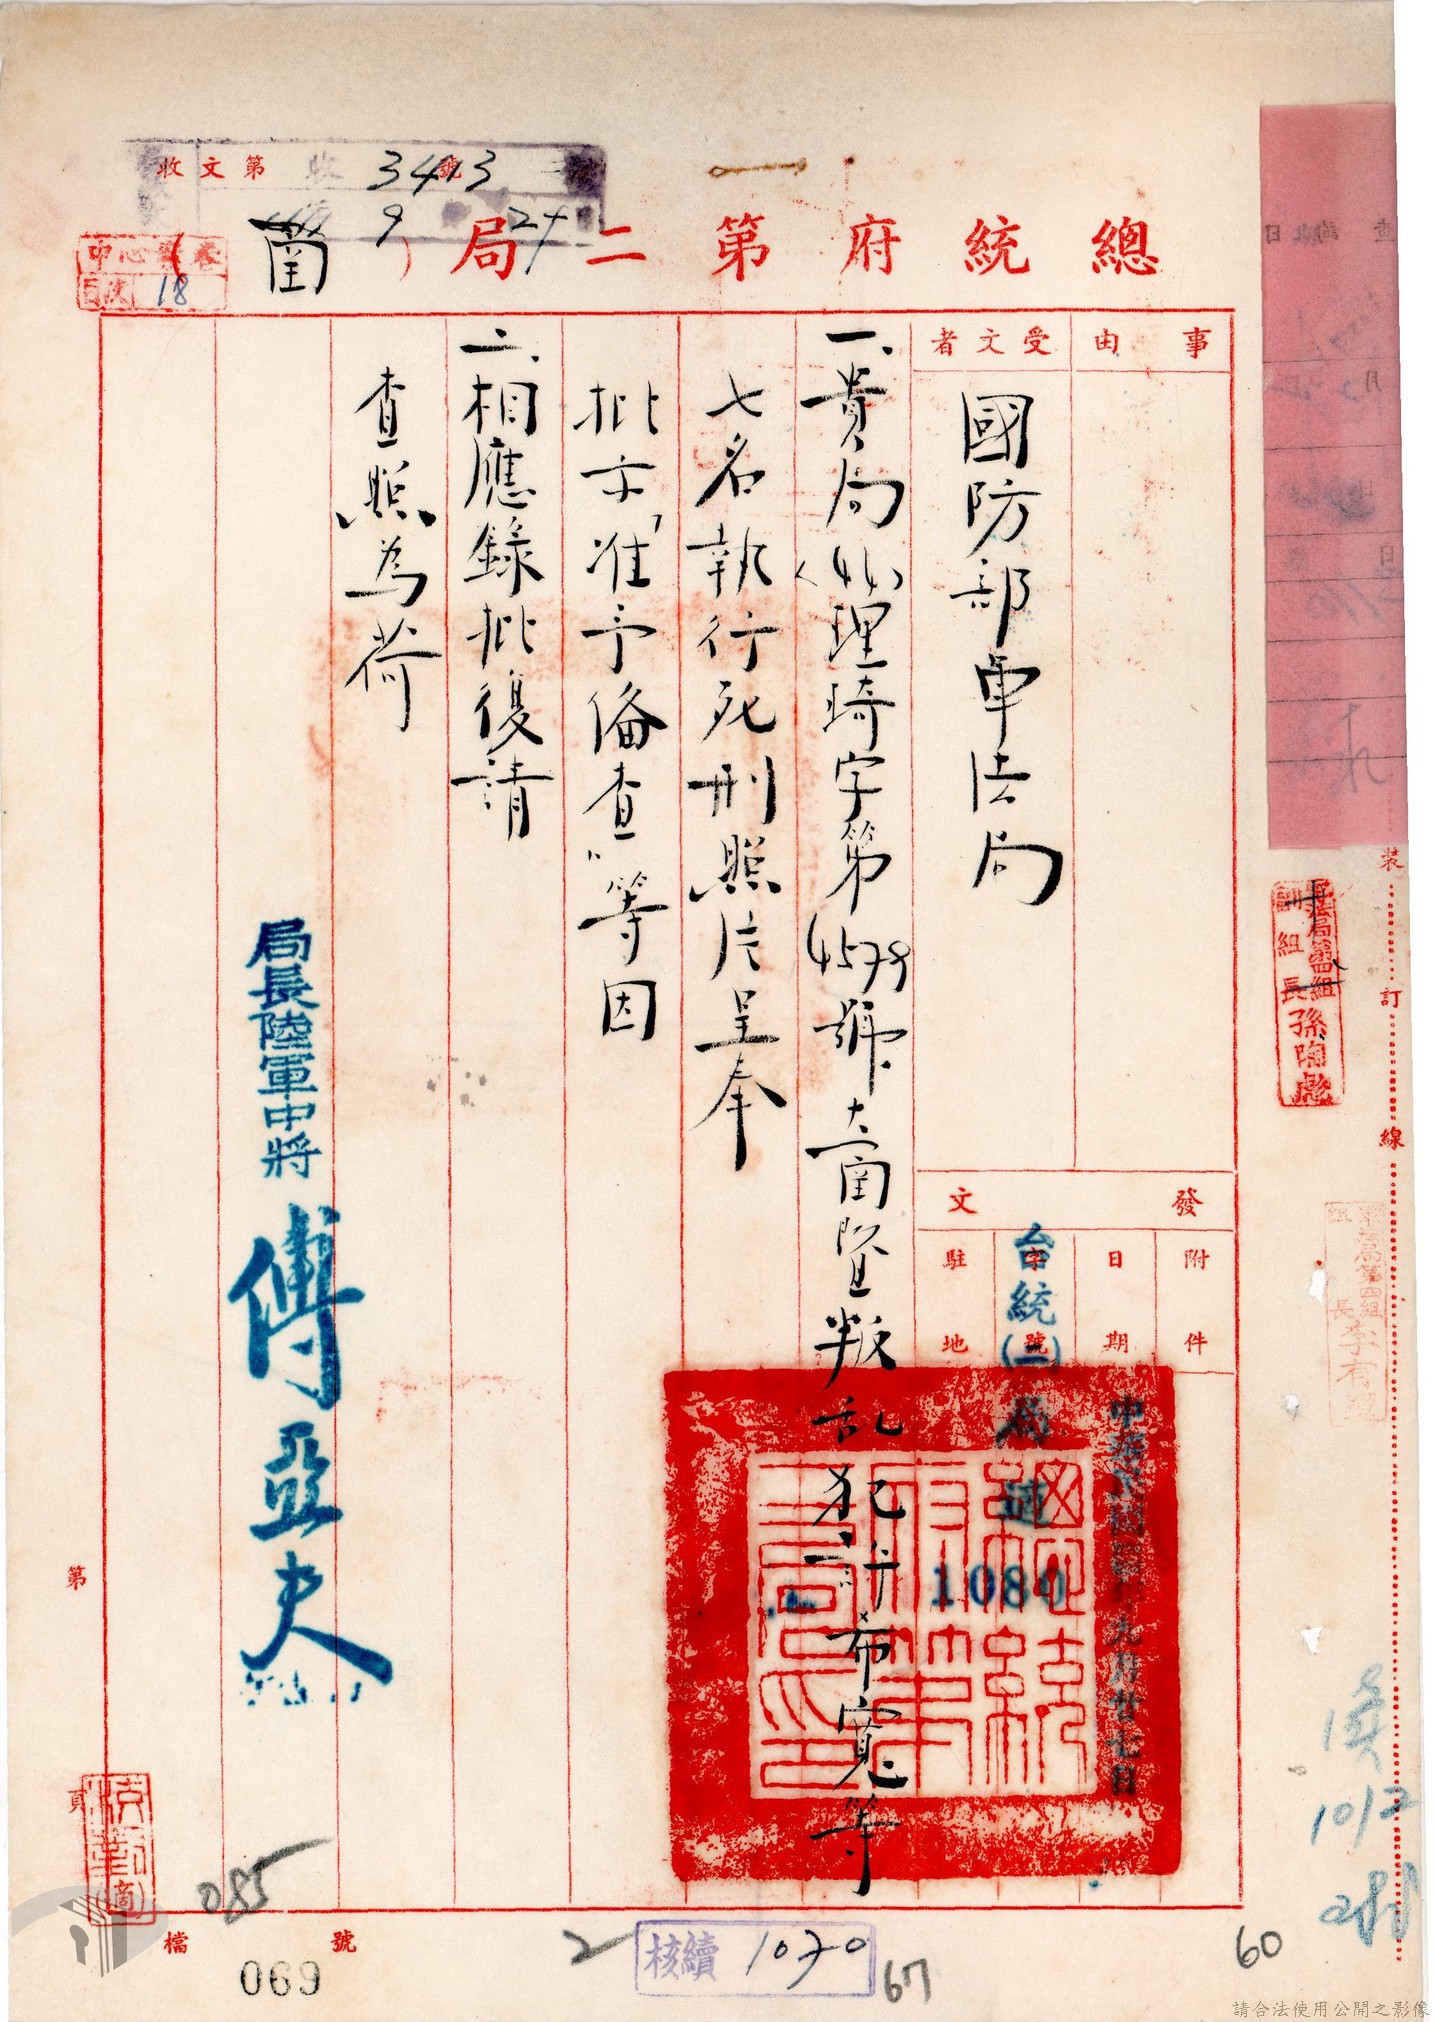 收文第 號
收 3413
9 24
總統府第二局（ 箋 ）
中心 卷
目次 18
事由
受文者
國防部軍法局
發文
附件
日期
字號
駐地
中華民國四十九年九月廿七日
台統(二)
1080
一、貴局（46）理琦字第4579號
叛乱犯許希寬等
七名執行死刑照片呈奉
批示「准予備查」等因
二、相應錄批復請
查照為荷
局長陸軍中將
傅亞夫
裝
訂
線
軍法局第四組
副組長孫陶彪
軍法局第四組
組長李有
10/2
第
頁
檔 號
085
069
2
核續 1070
67
60
請合法使用公開之影像